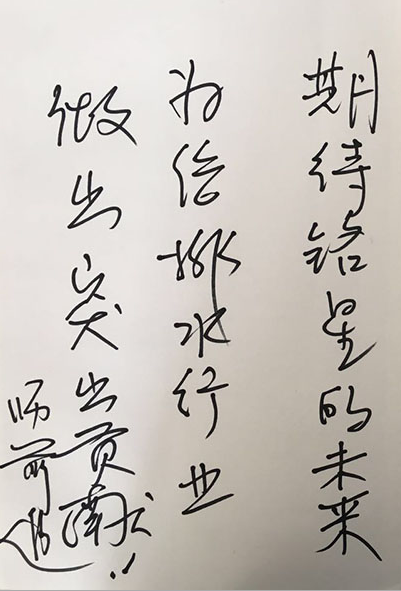 期待铭星的未来
为给排水行业
做出突出贡献!!
师前进